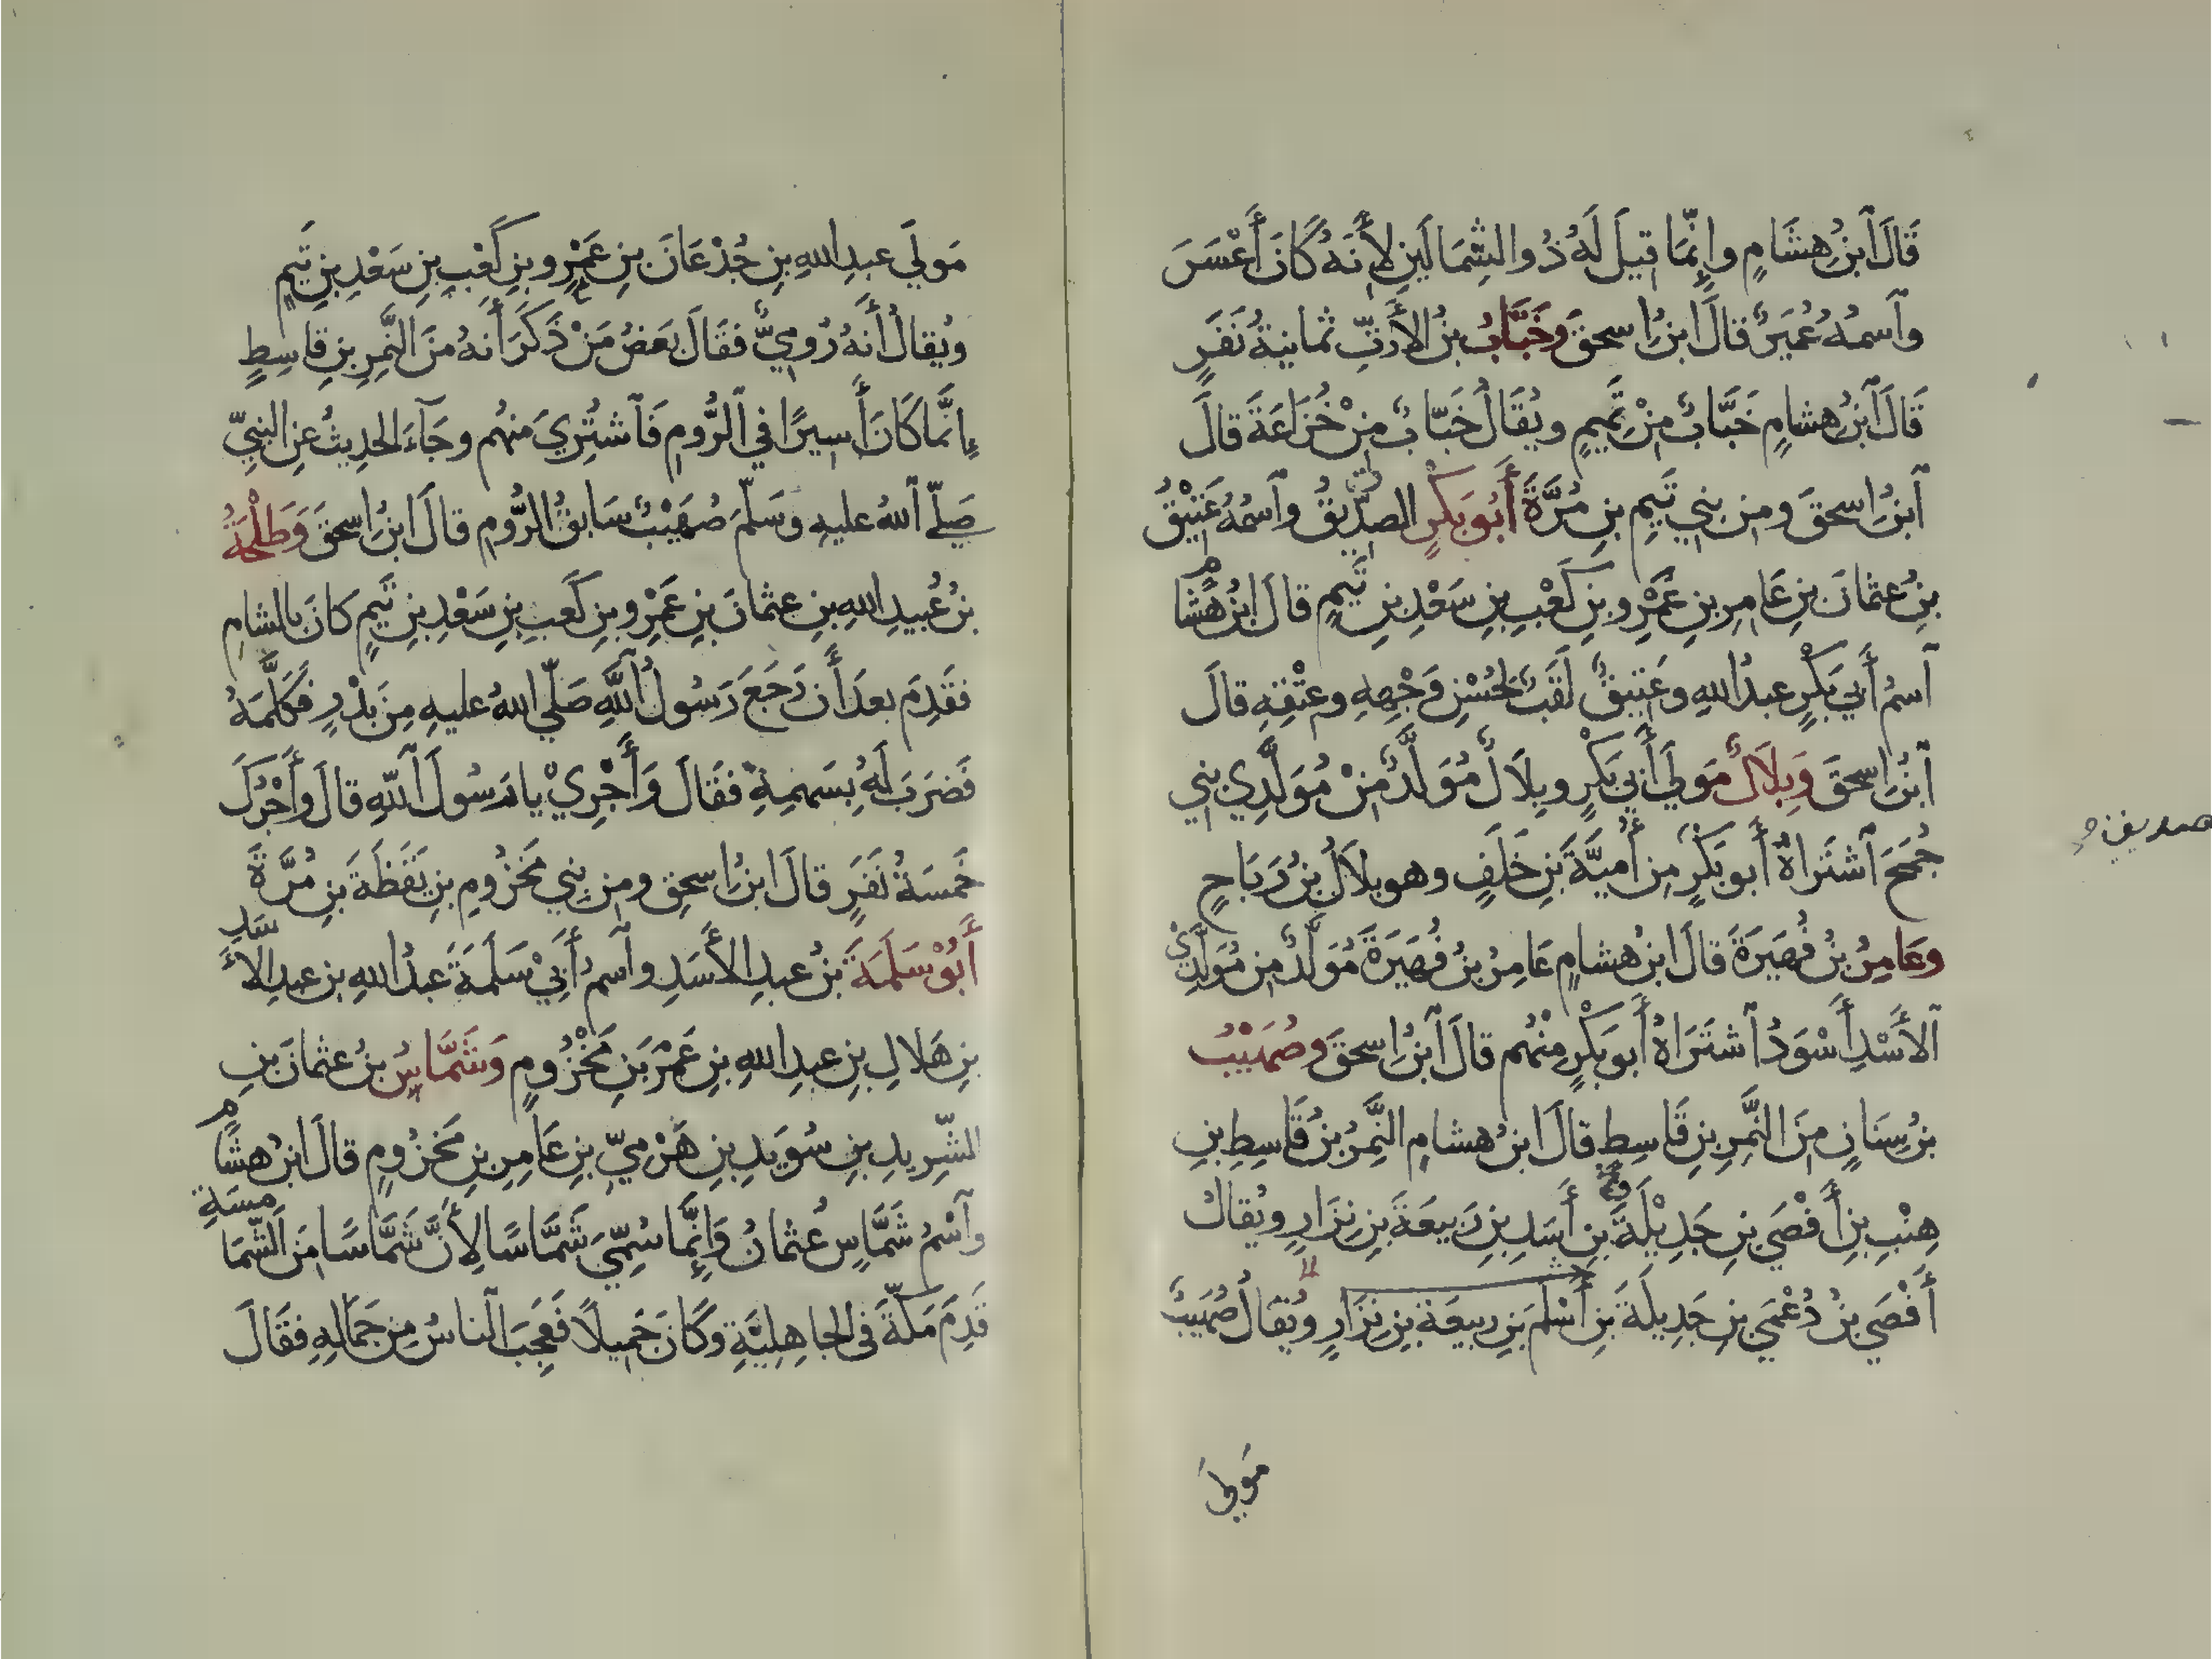 قَالَ ٱبنُ هِشَامٍ وإِنَّمَا قيلَ لَهُ ذُو الشِمَالَينِ لِأَنَهُ كَانَ أَعْسَرَ
وٱسمُهُ عُمَيرٌ قالَ ابنُ اسحقَ وخَبَّابُ بنُ الأَرَتِّ ثمانيةُ نَفَرٍ
قَالَ ٱبنُ هشامٍ خَبَّابٌ مِنْ تَمِيمٍ ويُقَالُ خَبّابٌ مِنْ خُزَاعَةَ قالَ
ٱبنُ اسحقَ ومِن بني تَيمِ بنِ مُرَّةَ أَبُو بَكْرٍ الصدِّيقُ وٱسمُهُ عَتيْقُ
بنِ عثمانَ بنِ عَامِرِ بنِ عَمْرِو بنِ كَعْبِ بنِ سَعْدِ بنِ تَيمٍ قالَ ابنُ هشامٍ
ٱسمُ أَبي بَكْرٍ عبدُ اللهِ وعَتيقٌ لَقَبٌ لحُسْنِ وَجْهِهِ وعتْقِهِ قالَ
ٱبنُ اسحقَ وَبِلَالٌ مَولَي أَبي بَكْرٍ وبِلَالٌ مُوَلَّدٌ مِنْ مُوَلَّدِي بني
جُمَحَ ٱشتَراهُ أَبو بَكْرٍ مِن أُميَّةَ بنِ خَلَفٍ وهو بِلَالُ بنُ رَبَاحٍ
وعَامِرُ بنُ فُهَيرَةَ قالَ ابنُ هشامٍ عَامِرُ بنُ فُهَيرَةَ مُوَلَّدٌ مِن مُوَلَّدِيْ
ٱلأَسْدِ أَسْوَدُ ٱشتَرَاهُ أَبو بَكْرٍ مِنْهُم قالَ ٱبنُ اسحقَ وصُهَيْبُ
بنُ سِنَانٍ مِنَ النَّمِرِ بنِ قَاسِطٍ قالَ ابنُ هشامٍ النَّمِرُ بنُ قَاسِطِ بنِ
هِنْبِ بنِ أَفْصَي بنِ جَدِيْلَةَ بنِ أَسَدِ بنِ رَبيعَةَ بنِ نِزَارٍ ويُقالُ
أَفْصَي بنُ دُعْمَيِ بنِ جَدِيلَةَ بنِ أَسْلَمَ بنِ ربيعَةَ بنِ نِزَارٍ ويُقالُ صُهَيبٌ
مَولَي
مَولَي عبدِ اللهِ بنِ جُدْعَانَ بنِ عَمْرِو بنِ كَعْبِ بنِ سَعْدِ بنِ تَيمٍ
ويُقالُ أَنهُ رُومِيٌّ فقَالَ بَعَضُ مَنْ ذَكَرَ أَنهُ مِنَ النَّمِرِ بنِ قاسِطٍ
إِنَّمَا كَانَ أَسيرًا في ٱلرُّومِ فَٱشتُرِيَ مِنهُم وجَآءَ الحَدِيثُ عِنِ النبِيِّ
صَلّي ٱللهُ عليهِ وَسَلّمَ صُهَيْبٌ سَابقُ الرُّومِ قالَ ابنُ اسحقَ وَطَلْحَةُ
بنُ عُبيدِ اللهِ بنِ عثمانَ بنِ عَمْرِو بنِ كَعبِ بنِ سَعْدِ بنِ تَيمٍ كانَ بالشامِ
فقَدِمَ بعدَ أَن رَجَعَ رَسُولُ ٱللَّهِ صَلّي اللهُ عليهِ مِنَ بَدْرٍ فَكَلَّمَهُ
فَضرَبَ لَهُ بِسَهمِهِ فقَالَ وَأَجْرِيْ يا رَسُولَ ٱللهِ قالَ وأَجْرُكَ
خَمسَةُ نَفَرٍ قالَ ابنُ اسحق ومِن بني مَخزُومِ بنِ يَقَظَةَ بنِ مُرَّةَ
أَبُوْ سَلَمَةَ بنُ عبدِ الأَسَدِ وٱسمُ أَبيْ سَلَمَةَ عَبدُ اللهِ بنِ عبدِ الأَسَدِ
بنِ هَلالِ بنِ عبدِ اللهِ بنِ عَمْرَ بنِ مَخْزُومٍ وَشَمَّاسُ بنُ عثمانَ بنِ
الشّرِيدِ بنِ سُوَيدِ بنِ هَرْمِيِّ بنِ عَامِرِ بنِ مَخزُومٍ قالَ ابنُ هشَامٍ
وٱسْمُ شَمَّاسٍ عُثمانُ وَإِنَّمَا سُمِّيَ شَمَّاسًا لِأَنَّ شَمَّاسًا مِنَ الشَّمَامِسَةِ
قَدِمَ مَكّةَ في الجاهِليَّةِ وكَانَ جَمِيلًا فَعَجِبَ ٱلناسُ مِن جَمَالهِ فقَالَ